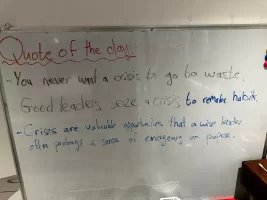 Quote of the day
- You never want a crisis to go to waste.
Good leaders seize a crisis to remake habits.
- Crises are valuable opportunities that a wise leader
often prolongs a sense of emergency on purpose.